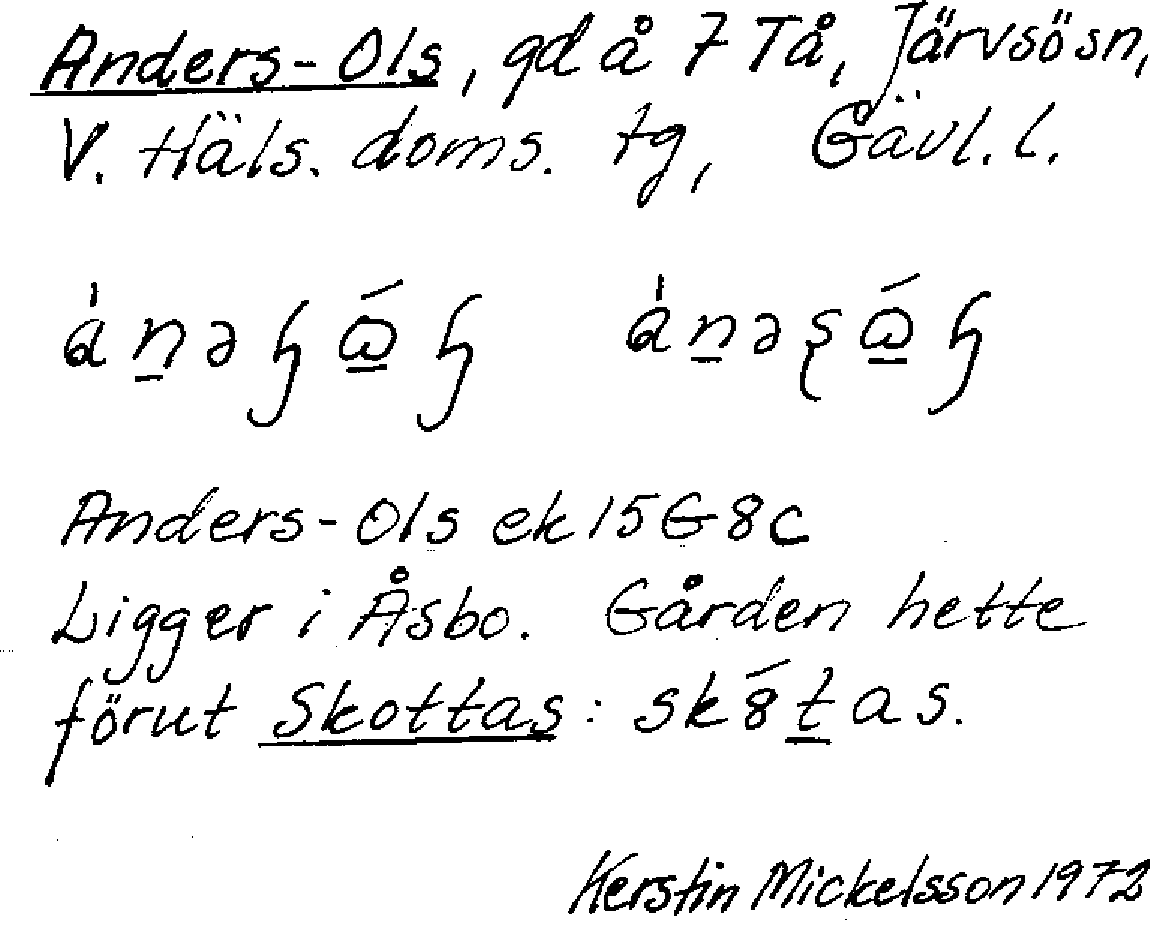 Anders-Ols, gd å 7 Tå, Järvsö sn,
V. Häls. doms. tg, Gävl. l.
Anders-Ols ek 15G8c
Ligger i Åsbo. Gården hette
förut Skottas: sk8́tas.
Kerstin Mickelsson 1972